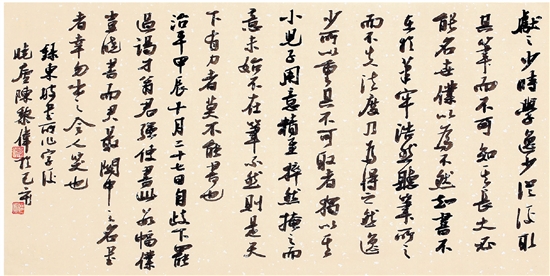 獻之少時學逸少從後取
其筆而不可知其長大必
能名世僕以為不然知書不
在於筆牢浩然聽筆所之
而不失法度乃為得之然逸
少所以重其不可取者獨以其
小兒子用意精至猝然掩之而
意未始不在筆不然則是天
下有力者莫不能書也
治平甲辰十月二十七日自岐下罷
過謁才翁君強使書此數幅僕
豈曉書而君最關中之名書
者幸勿出之令人笑也
錄東坡書所作字後
陳黎偉